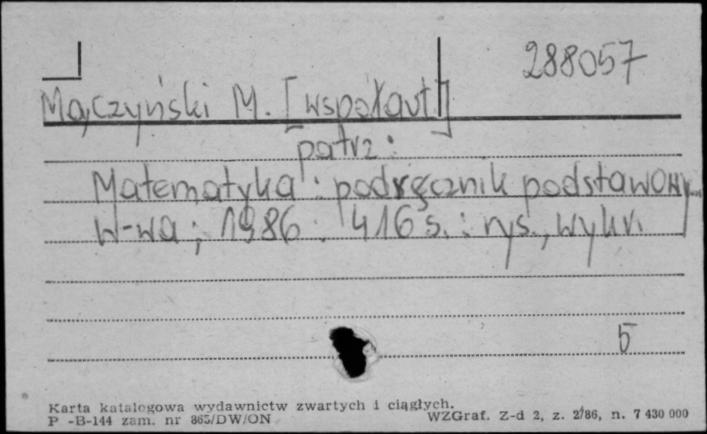 288057
Mączyński M. [współaut.]
patrz:
Matematyka : podręcznik podstawowy.
W-wa ; 1986. 416 s. : rys., wykr.
5
Karta katalogowa wydawnictw zwartych i ciągłych.
P -B-144 zam. nr 865/DW/ON WZGraf. Z-d 2, z. 2/86, n. 7 430 000